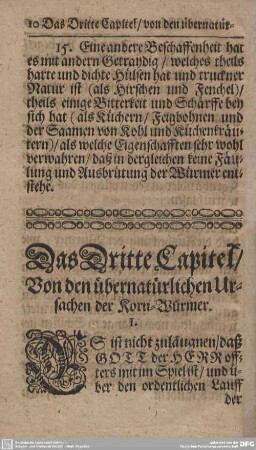 10 Das Dritte Capitel / von den übernatür-
15. Eine andere Beschaffenheit hat
es mit andern Getraydig / welches theils
harte und dichte Hülsen hat und truckner
Natur ist (als Hirschen und Fenchel)
theils einige Bitterkeit und Schärffe bey
sich hat (als Küchern / Feigbohnen und
der Saamen von Kohl und Küchenkräu-
tern) / als welche Eigenschafften sehr wohl
verwahren / daß in dergleichen keine Fäu-
lung und Ausbrütung der Würmer ent-
stehe.
Das Dritte Capitel /
Von den übernatürlichen Ur-
sachen der Korn-Würmer.
1.
ES ist nicht zuläugnen / daß
GOTT der HERR off-
ters mit im Spiel ist / und ü-
ber den ordentlichen Lauff
der